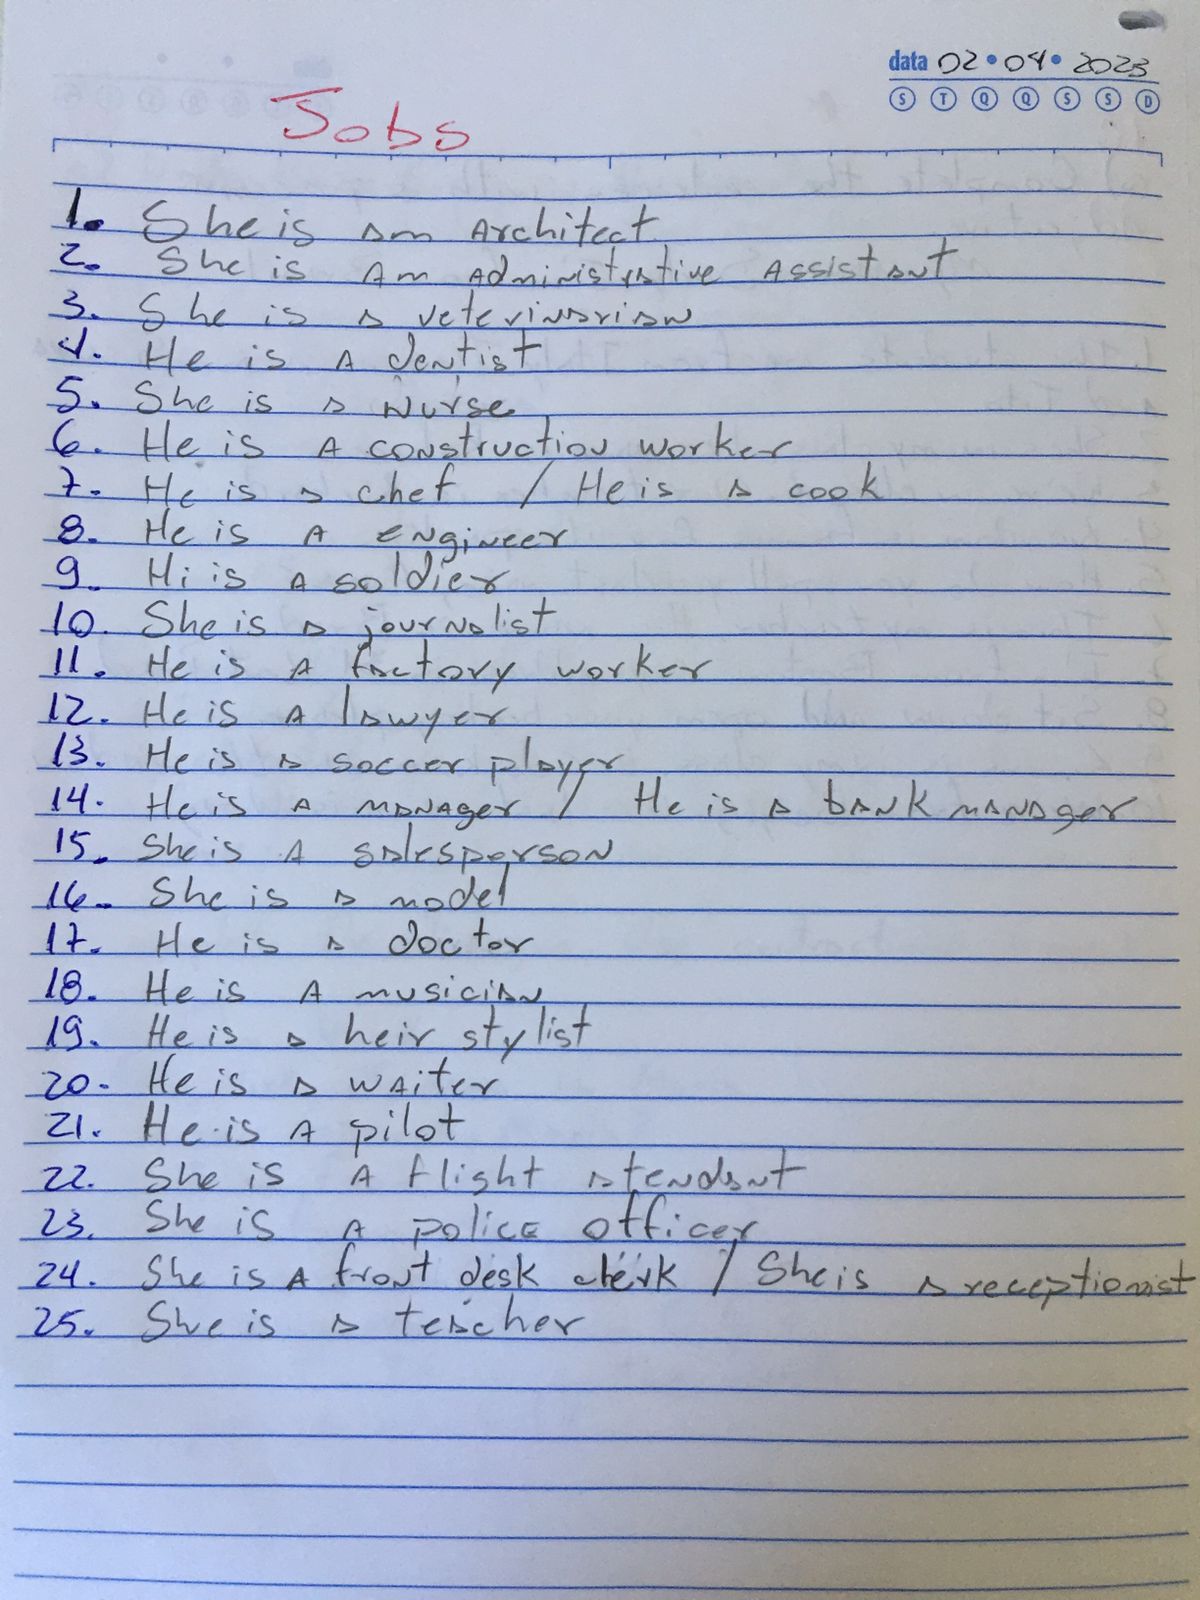 data 02 • 04 • 2023
S T Q Q S S D
Jobs
1. She is am Architect
2. She is Am Administrative Assistant
3. She is a veterinarian
4. He is A dentist
5. She is a Nurse
6. He is A construction worker
7. He is a chef / He is a cook
8. He is A engineer
9. Hi is A soldier
10. She is a journalist
11. He is A factory worker
12. He is A lawyer
13. He is a soccer player
14. He is A manager / He is a bank manager
15. She is A salesperson
16. She is a model
17. He is a doctor
18. He is A musician
19. He is a heir stylist
20. He is a waiter
21. He is A pilot
22. She is A flight atendant
23. She is A police officer
24. She is A front desk clerk / She is a receptionist
25. She is a teacher